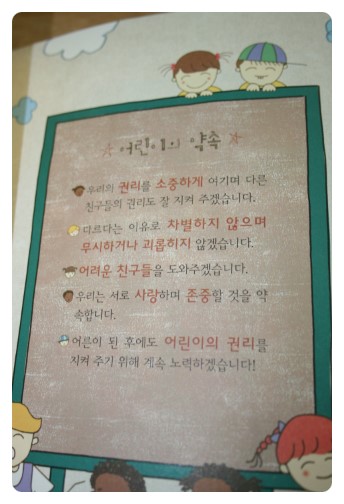 어린이의 약속
우리의 권리를 소중하게 여기며 다른
친구들의 권리도 잘 지켜 주겠습니다.
다르다는 이유로 차별하지 않으며
무시하거나 괴롭히지 않겠습니다.
어려운 친구들을 도와주겠습니다.
우리는 서로 사랑하며 존중할 것을 약
속합니다.
어른이 된 후에도 어린이의 권리를
지켜 주기 위해 계속 노력하겠습니다!